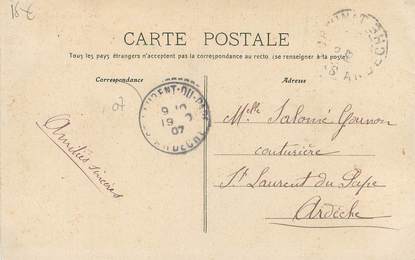 15€
CARTE POSTALE
Tous les pays étrangers n'acceptent pas la correspondance au recto. (se renseigner à la poste).
Correspondance
Adresse
07
ST LAURENT-DU-PAPE
9
19
07
ARDECHE
ARDECHE
Amitiés sincères
Melle Salomé Gounon
couturière
St Laurent du Pape
Ardèche